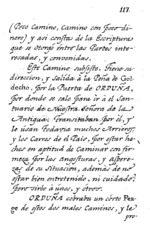 117.
(Poco Camino, Camino con poco di-
nero) y asi consta de la Escritura
que se otorgó entre las Partes intere-
sadas, y convenidas.
Este Camino subsiste, tiene su
direccion, y salida à la Peña de Gol-
decho, por la Puerta de ORDUÑA,
por donde se sale para ir à el San-
tuario de Nuestra Señora de la
Antigua: Transitaban por él, y
le usan todavia muchos Arrieros,
y los Carros de el País, por estar ha-
chos en aptitud de Caminar con fir-
meza por las angosturas, y aspere-
zas de su situacion, además de no
estar bien entretenido, ni cuidado
por unos, y otros.
ORDUÑA cobraba un corto Pea-
ge de estos dos malos Caminos, y le
pro-